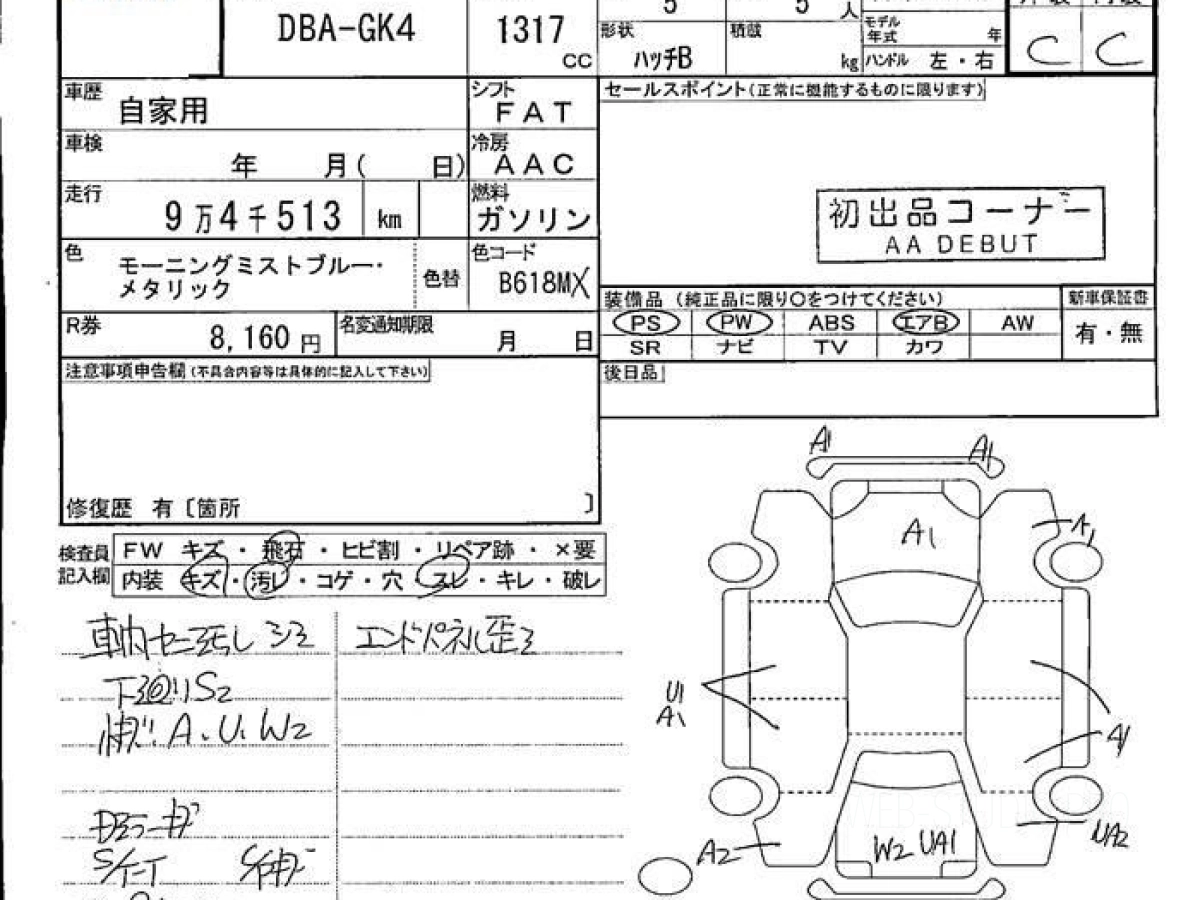 DBA-GK4
1317
cc
5
5
人
形状
ハッチB
積載
kg
モデル
年式
年
ハンドル 左・右
C
C
車歴
自家用
シフト
FAT
セールスポイント(正常に機能するものに限ります)
車検
年 月( 日)
冷房
AAC
走行
9万4千513 km
燃料
ガソリン
初出品コーナー
AA DEBUT
色
モーニングミストブルー・
メタリック
色替
色コード
B618MX
装備品 (純正品に限り○をつけてください)
新車保証書
PS PW ABS エアB AW
有・無
SR ナビ TV カワ
R券
8,160 円
名変通知期限
月 日
注意事項申告欄(不具合内容等は具体的に記入して下さい)
後日品
修復歴 有〔箇所 〕
検査員
記入欄
FW キズ・飛石・ヒビ割・リペア跡・×要
内装 キズ・汚レ・コゲ・穴・スレ・キレ・破レ
エンドパネル歪ミ
下廻リS2
A.U.W2
A1
A1
A1
A1
U1
A1
A1
A2
W2 UA1
UA2